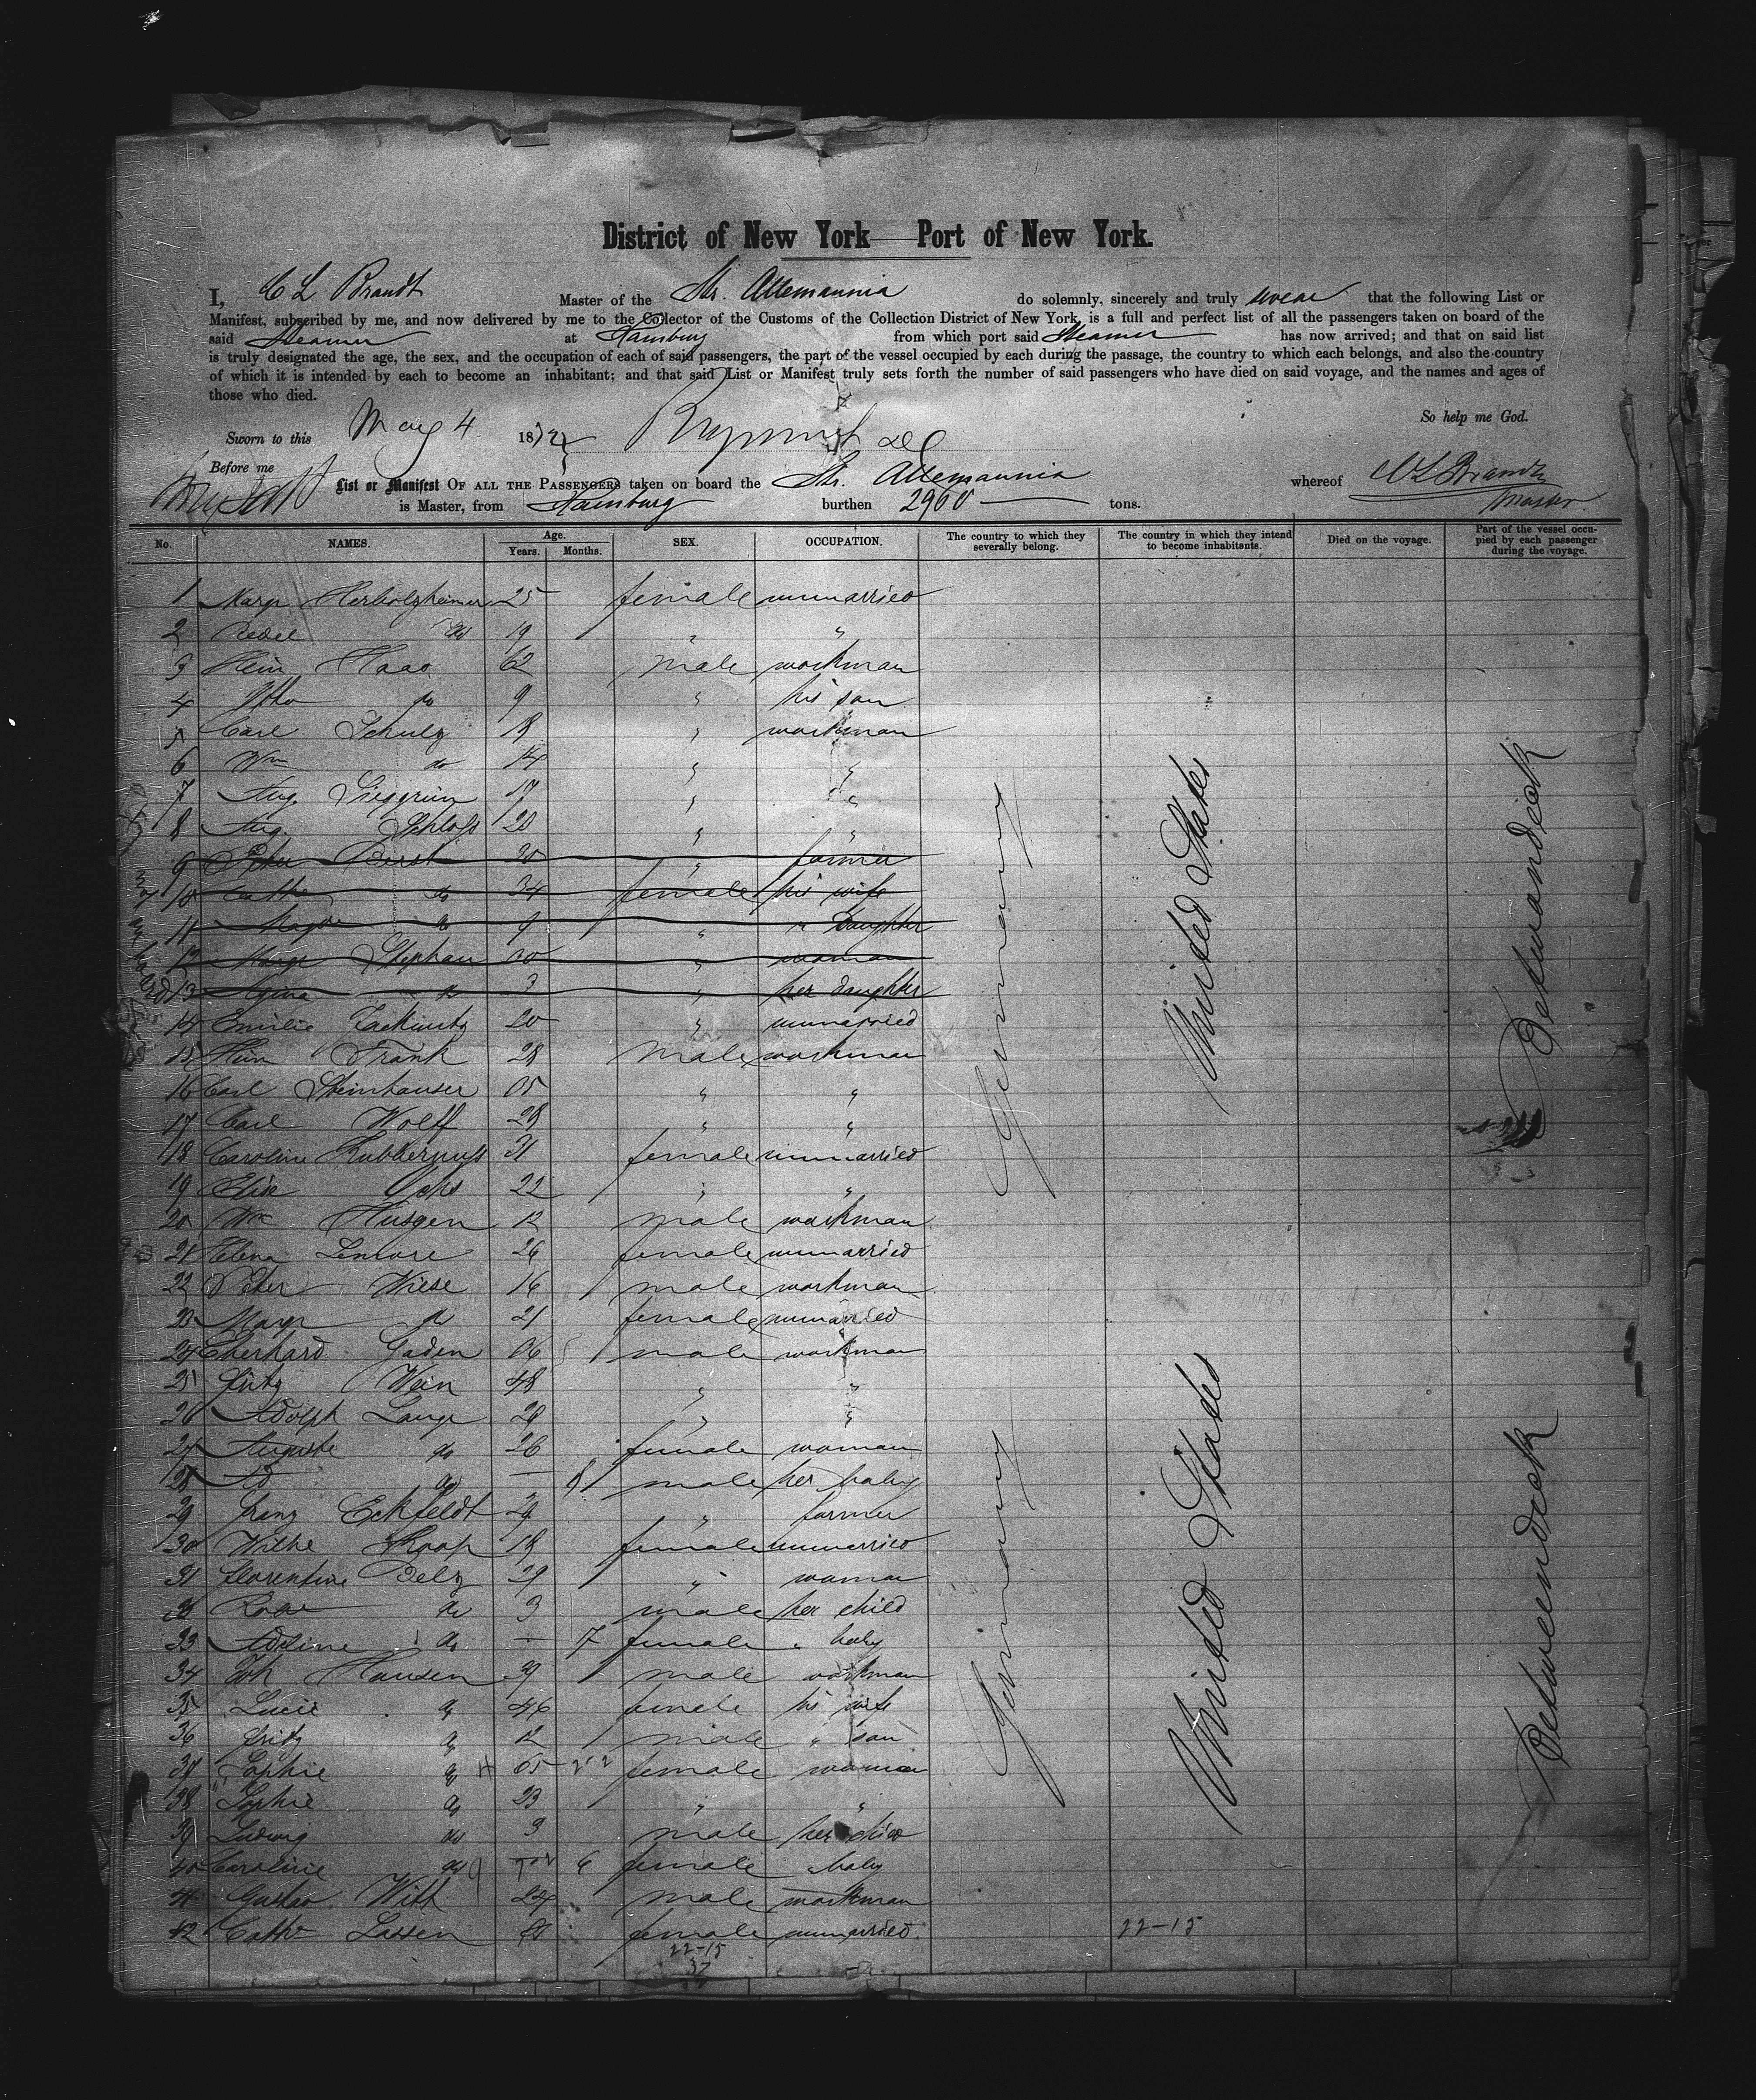 District of New York—Port of New York.
I, C L Brandt Master of the Str. Allemannia do solemnly, sincerely and truly swear that the following List or
Manifest, subscribed by me, and now delivered by me to the Collector of the Customs of the Collection District of New York, is a full and perfect list of all the passengers taken on board of the
said Steamer at Hamburg from which port said Steamer has now arrived; and that on said list
is truly designated the age, the sex, and the occupation of each of said passengers, the part of the vessel occupied by each during the passage, the country to which each belongs, and also the country
of which it is intended by each to become an inhabitant; and that said List or Manifest truly sets forth the number of said passengers who have died on said voyage, and the names and ages of
those who died.
So help me God.
Sworn to this May 4 1872
Before me
List or Manifest OF ALL THE PASSENGERS taken on board the Str. Allemannia whereof C L Brandt
is Master, from Hamburg burthen 2960 tons. Master
No. NAMES. Age. Years. Months. SEX. OCCUPATION. The country to which they severally belong. The country in which they intend to become inhabitants. Died on the voyage. Part of the vessel occupied by each passenger during the voyage.
1 Margr Herbolzheimer 25 female unmarried
2 do 19 " "
3 Hein Haas 62 male workman
4 Otto do 9 " his son
5 Carl Schulz 18 " workman
6 Wm do 14 " "
7 Aug. Sieggrün 17 " "
8 Aug. Schloss 20 " "
9 Peter " farmer
10 Cathe do 34 female his wife
11 do 9 " " Daughter
12 Margr Stephan " woman
13 do 3 " her daughter
14 Emilie 20 " unmarried
15 Hein Frank 28 male workman
16 Carl Steinhauser " "
17 Carl Wolff 28 " "
18 Caroline 31 female unmarried
19 Elise Ochs 22 " "
20 Wm Husgen 12 male workman
21 Helena Lemore 26 female unmarried
22 Peter Wiese 16 male workman
23 Margr do 21 female unmarried
24 Eberhard Gaden male workman
25 Fritz Wein 48 " "
26 Adolph Lange 28 " "
27 Auguste do 26 female woman
28 Ad do — 8 male her baby
29 Franz Eckfeldt 29 " farmer
30 Wilhe Koop 18 female unmarried
31 Florentine Belz 29 " woman
32 do 3 male her child
33 Adeline do — 7 female " baby
34 Joh Hansen 39 male workman
35 Lucie do 46 female his wife
36 Fritz do 12 male " son
37 Sophie do 65 female woman
38 Sophie do 23 " "
39 Ludwig do 3 male her child
40 Caroline do 6 female baby
41 Gustav Witt 24 male workman
42 Cathe Lassen female unmarried.
Germany
United States
Betweendeck
Germany
United States
Betweendeck
22-15
22-15
37